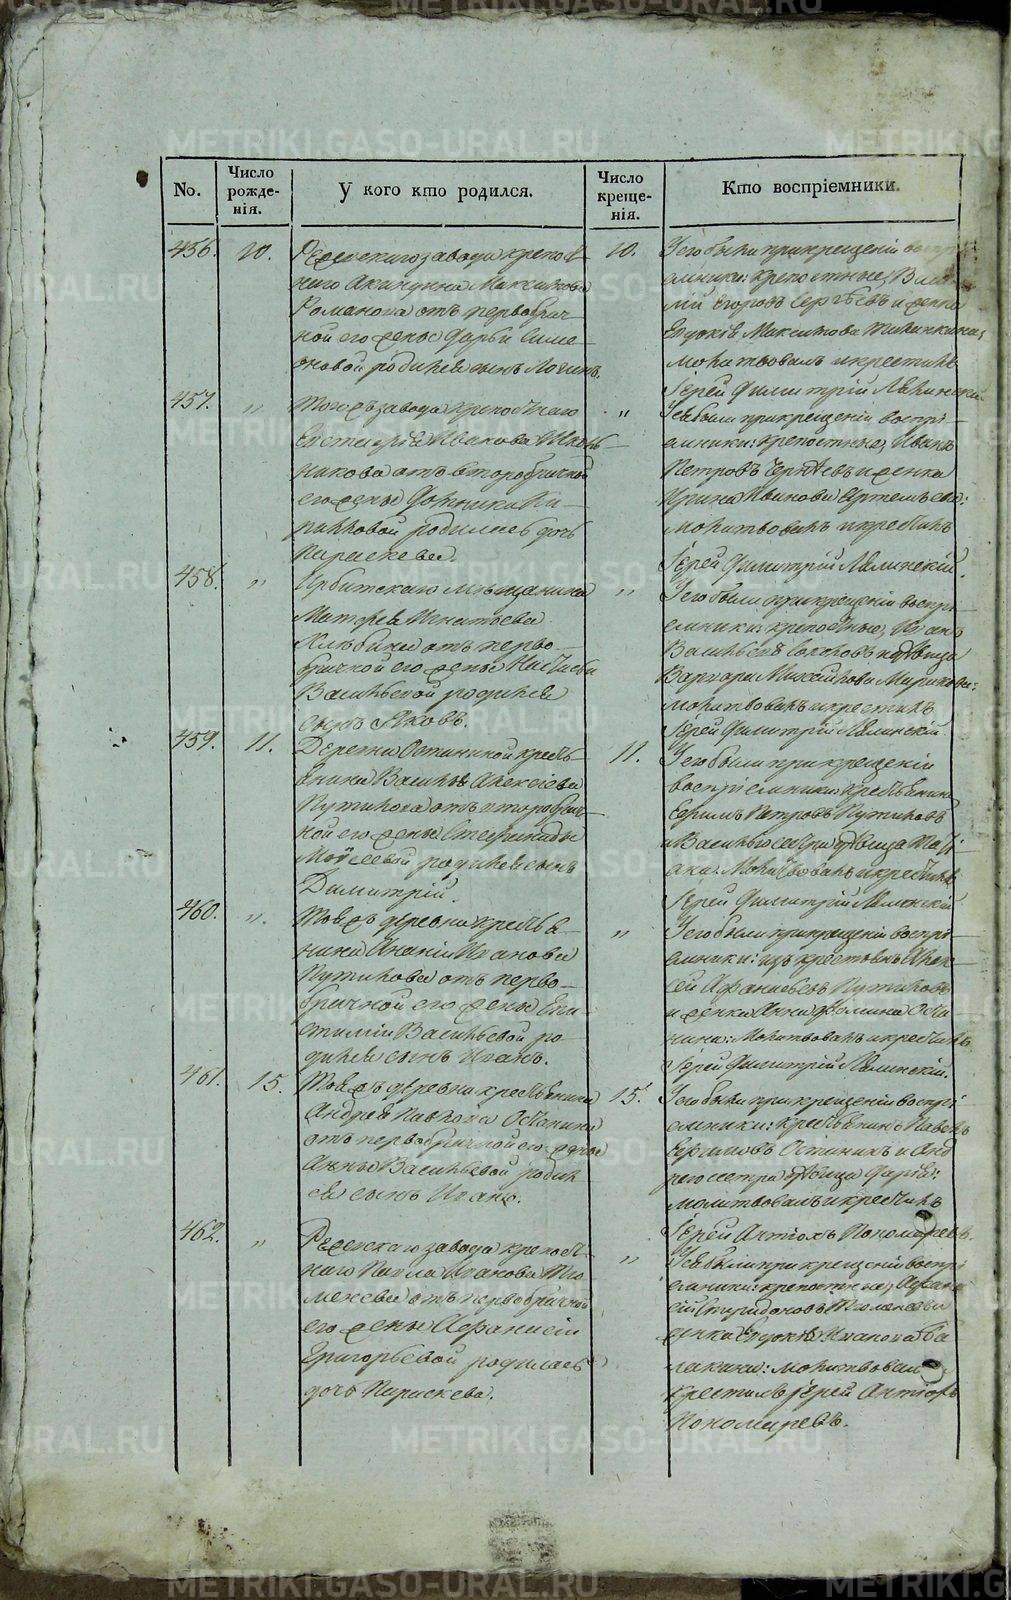 METRIKI.GASO-URAL.RU
No.
Число рожде-
нія.
У кого кто родился.
Число креще-
нія.
Кто воспріемники.
456.
10.
Режевскаго завода крепост-
наго Акиндина Максимова
Романова отъ первобрач-
ной его жены Дарьи Симе-
оновой родился сынъ Логинъ.
10.
У его были при крещеніи воспрі-
емники: крепостные,
Егоровъ Сергѣевъ и женка
Евдокія Максимова
молитвовалъ и крестилъ
Іерей Димитрій Лялинскій
457.
„
Того жъ завода крепостнаго
Евстафія Иванова
отъ второбрачной
его жены Домники Ки-
рилловой родилась дочь
Параскева.
„
У ея были при крещеніи воспрі-
емники: крепостные, Иванъ
Петровъ и женка
Ирина Иванова
молитвовалъ и крестилъ
Іерей Димитрій Лялинскій.
458.
„
Ирбитскаго мѣщанина
Матфея Игнатьева
Хлѣбина отъ перво-
брачной его жены Настасьи
Васильевой родился
сынъ Яковъ.
„
У его были при крещеніи воспрі-
емники: крепостные, Иванъ
Васильевъ и дѣвица
Варвара Михайлова
молитвовалъ и крестилъ
Іерей Димитрій Лялинскій.
459.
11.
Деревни Останиной кресть-
янина Василья Алексіева
Путилова отъ второбрач-
ной его жены Стефаниды
Моѵсеевой родился сынъ
Димитрій.
11.
У его были при крещеніи
воспріемники: крестьянинъ
Ефимъ Петровъ Путиловъ
и Васильева сестра дѣвица
молитвовалъ и крестилъ
Іерей Димитрій Лялинскій
460.
„
Той жъ деревни крестья-
нина Ананіи Иванова
Путилова отъ перво-
брачной его жены Епи-
стиміи Васильевой ро-
дился сынъ Иванъ.
„
У его были при крещеніи воспрі-
емники: изъ крестьянъ
Афанасьевъ Путиловъ
и женка Анна Фомина Оста-
нина: молитвовалъ и крестилъ
Іерей Димитрій Лялинскій.
461.
15.
Той жъ деревни крестьянина
Андрея Павлова Останина
отъ первобрачной его жены
Анны Васильевой родил-
ся сынъ Иванъ.
15.
У его были при крещеніи воспрі-
емники: крестьянинъ Павелъ
Ефимовъ Останинъ и Анд-
рея сестра дѣвица Марѳа:
молитвовалъ и крестилъ
Іерей Антіохъ Пономаревъ.
462.
„
Режевскаго завода крепост-
наго Павла Иванова Тю-
менева отъ первобрачной
его жены Афанасіи
Григорьевой родилась
дочь Параскева.
„
У ея были при крещеніи воспрі-
емники: крепостные,
Спиридоновъ Тюменевъ и
женка Евдокія Иванова Ба-
лакина: молитвовалъ и
крестилъ Іерей Антіохъ
Пономаревъ.